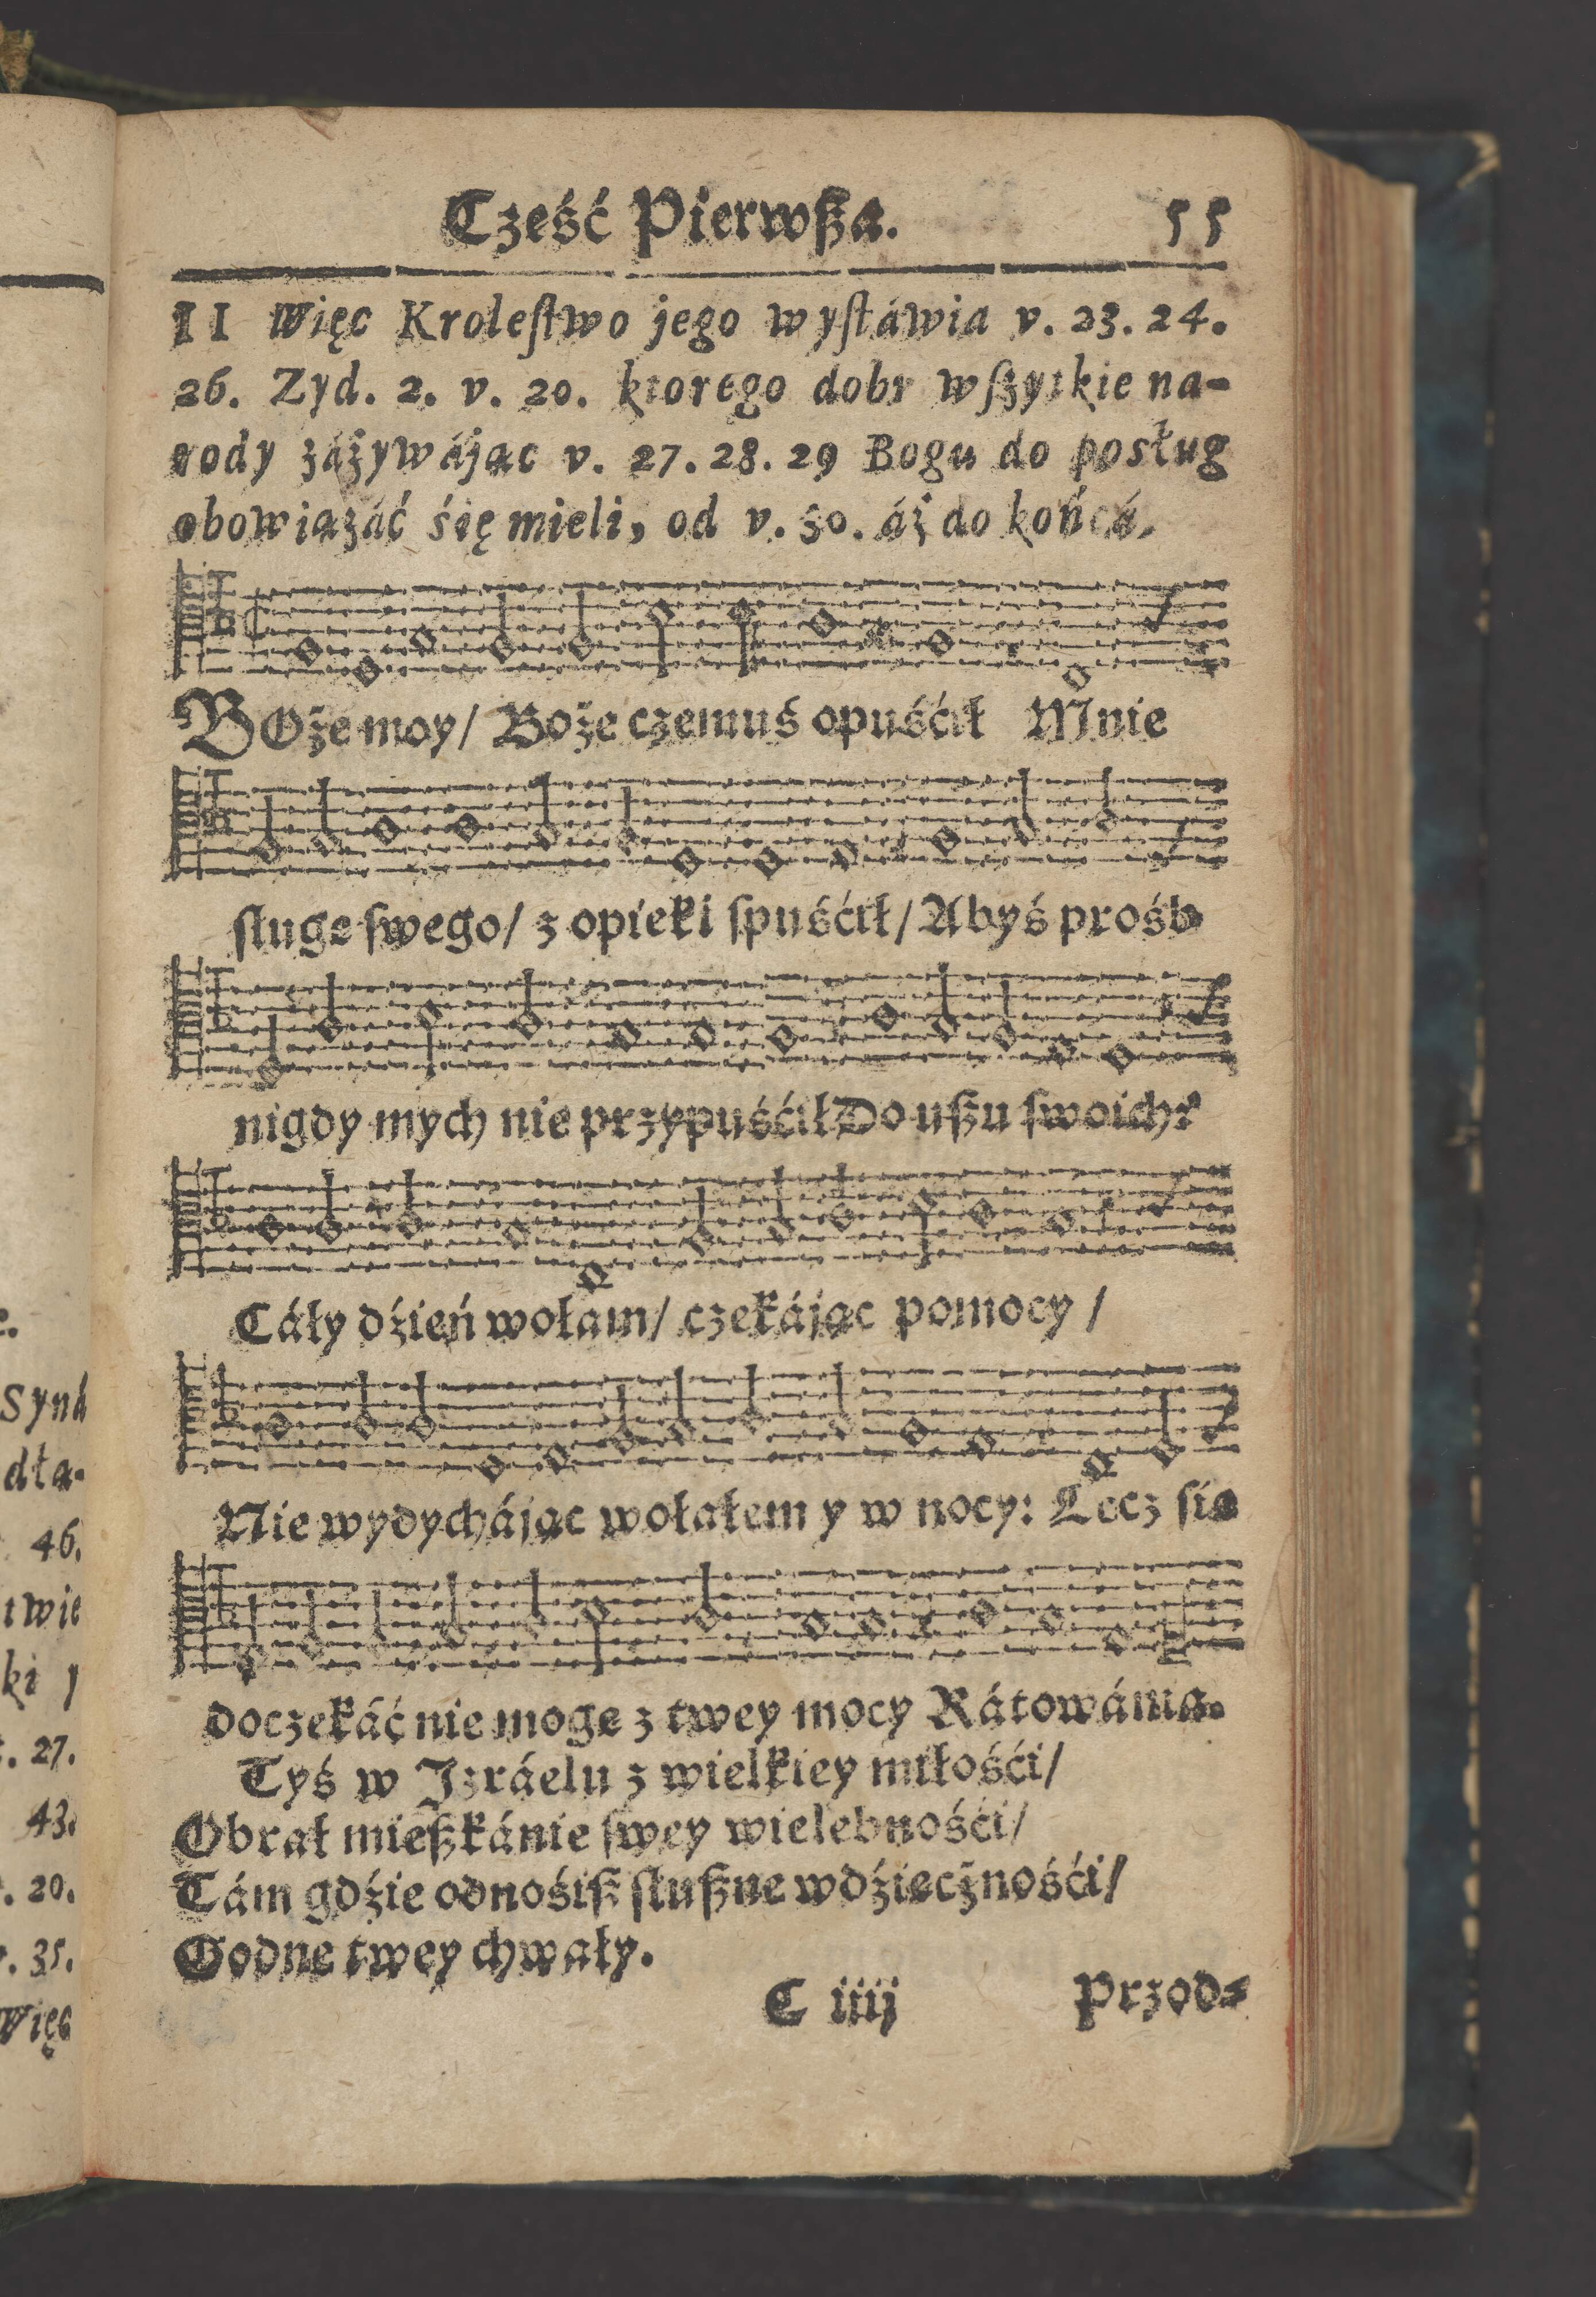 Cześć Pierwsza.
55
II Więc Kroleſtwo jego wyſtáwia v. 23. 24.
26. Zyd. 2. v. 20. ktorego dobr wſzytkie na-
rody záżywájąc v. 27. 28. 29 Bogu do posług
obowiązáć śię mieli, od v. 30. áż do końcá.
BOże moy/ Boże czemuś opuśćił Mnie
ſługę ſwego/ z opieki ſpuśćił/ Abyś prośb
nigdy mych nie przypuśćił Do uſzu ſwoich?
Cáły dźień wołam/ czekájąc pomocy /
Nie wydychájąc wołałem y w nocy: Lecz ſię
doczekáć nie mogę z twey mocy Rátowánia.
Tyś w Jzráelu z wielkiey miłośći/
Obrał mieſzkánie ſwey wielebnośći/
Tám gdźie odnośiſz ſłuſzne wdźięcżnośći/
Godne twey chwały.
C iiij
Przod⸗
Syná
dła-
46.
twie
ki y
27.
43.
20.
35.
Więc